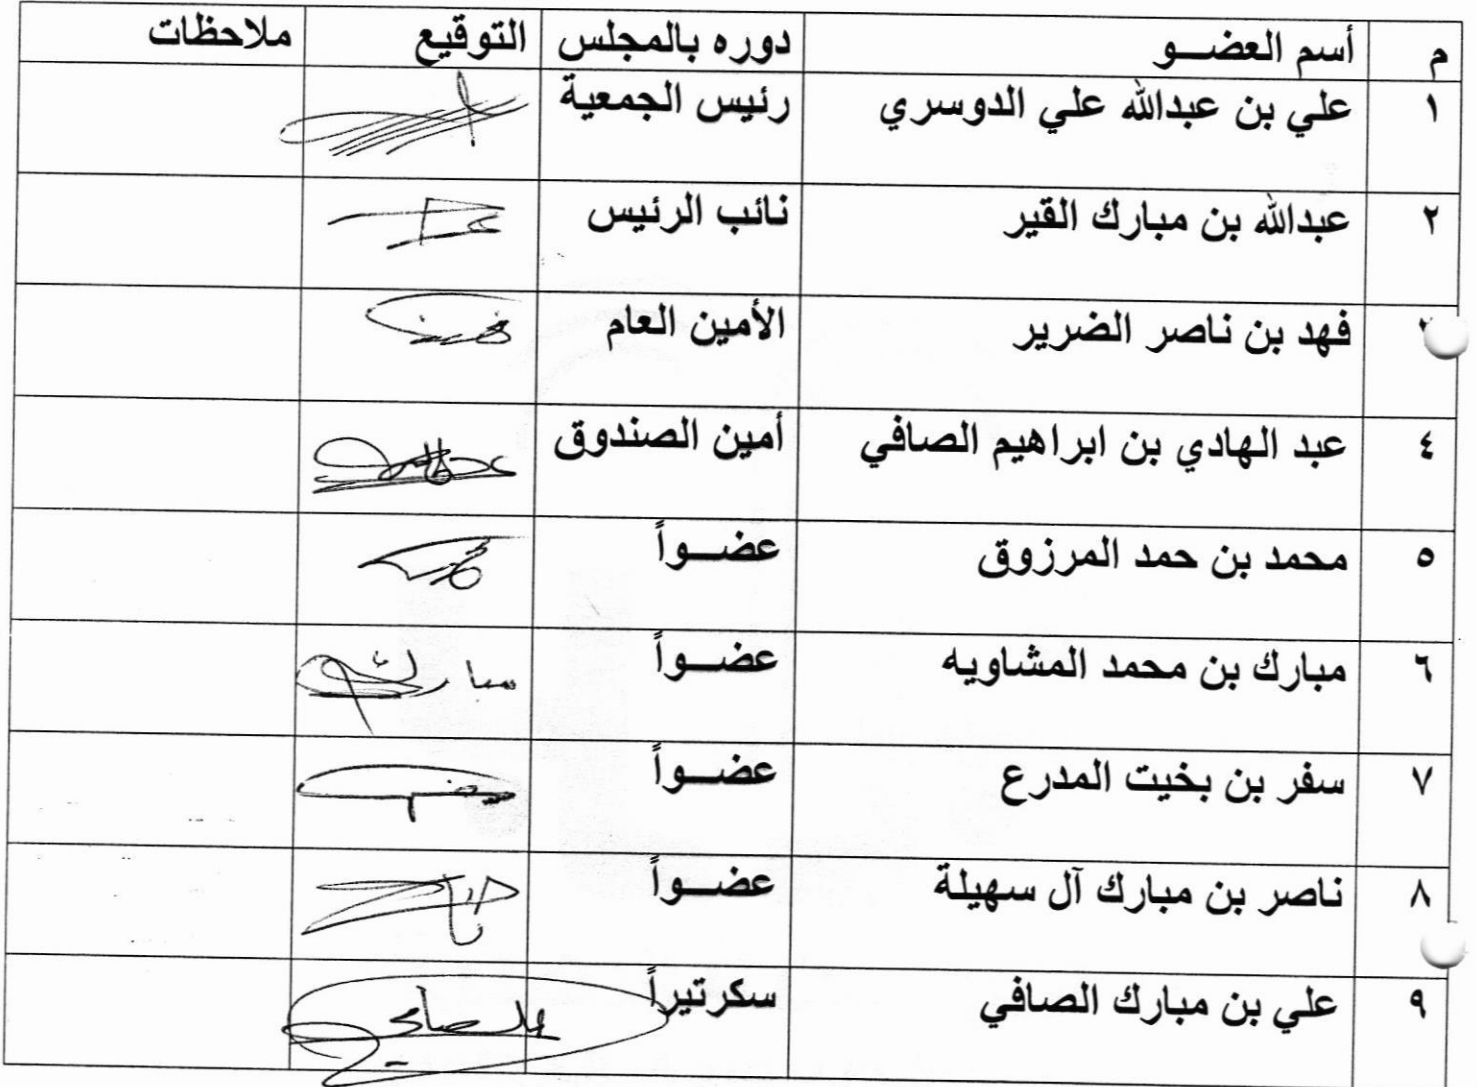 م أسم العضـــو دوره بالمجلس التوقيع ملاحظات
١ علي بن عبدالله علي الدوسري رئيس الجمعية
٢ عبدالله بن مبارك القير نائب الرئيس
فهد بن ناصر الضرير الأمين العام
٤ عبد الهادي بن ابراهيم الصافي أمين الصندوق
٥ محمد بن حمد المرزوق عضـــواً
٦ مبارك بن محمد المشاويه عضـــواً مبارك
٧ سفر بن بخيت المدرع عضـــواً
٨ ناصر بن مبارك آل سهيلة عضـــواً
٩ علي بن مبارك الصافي سكرتيراً